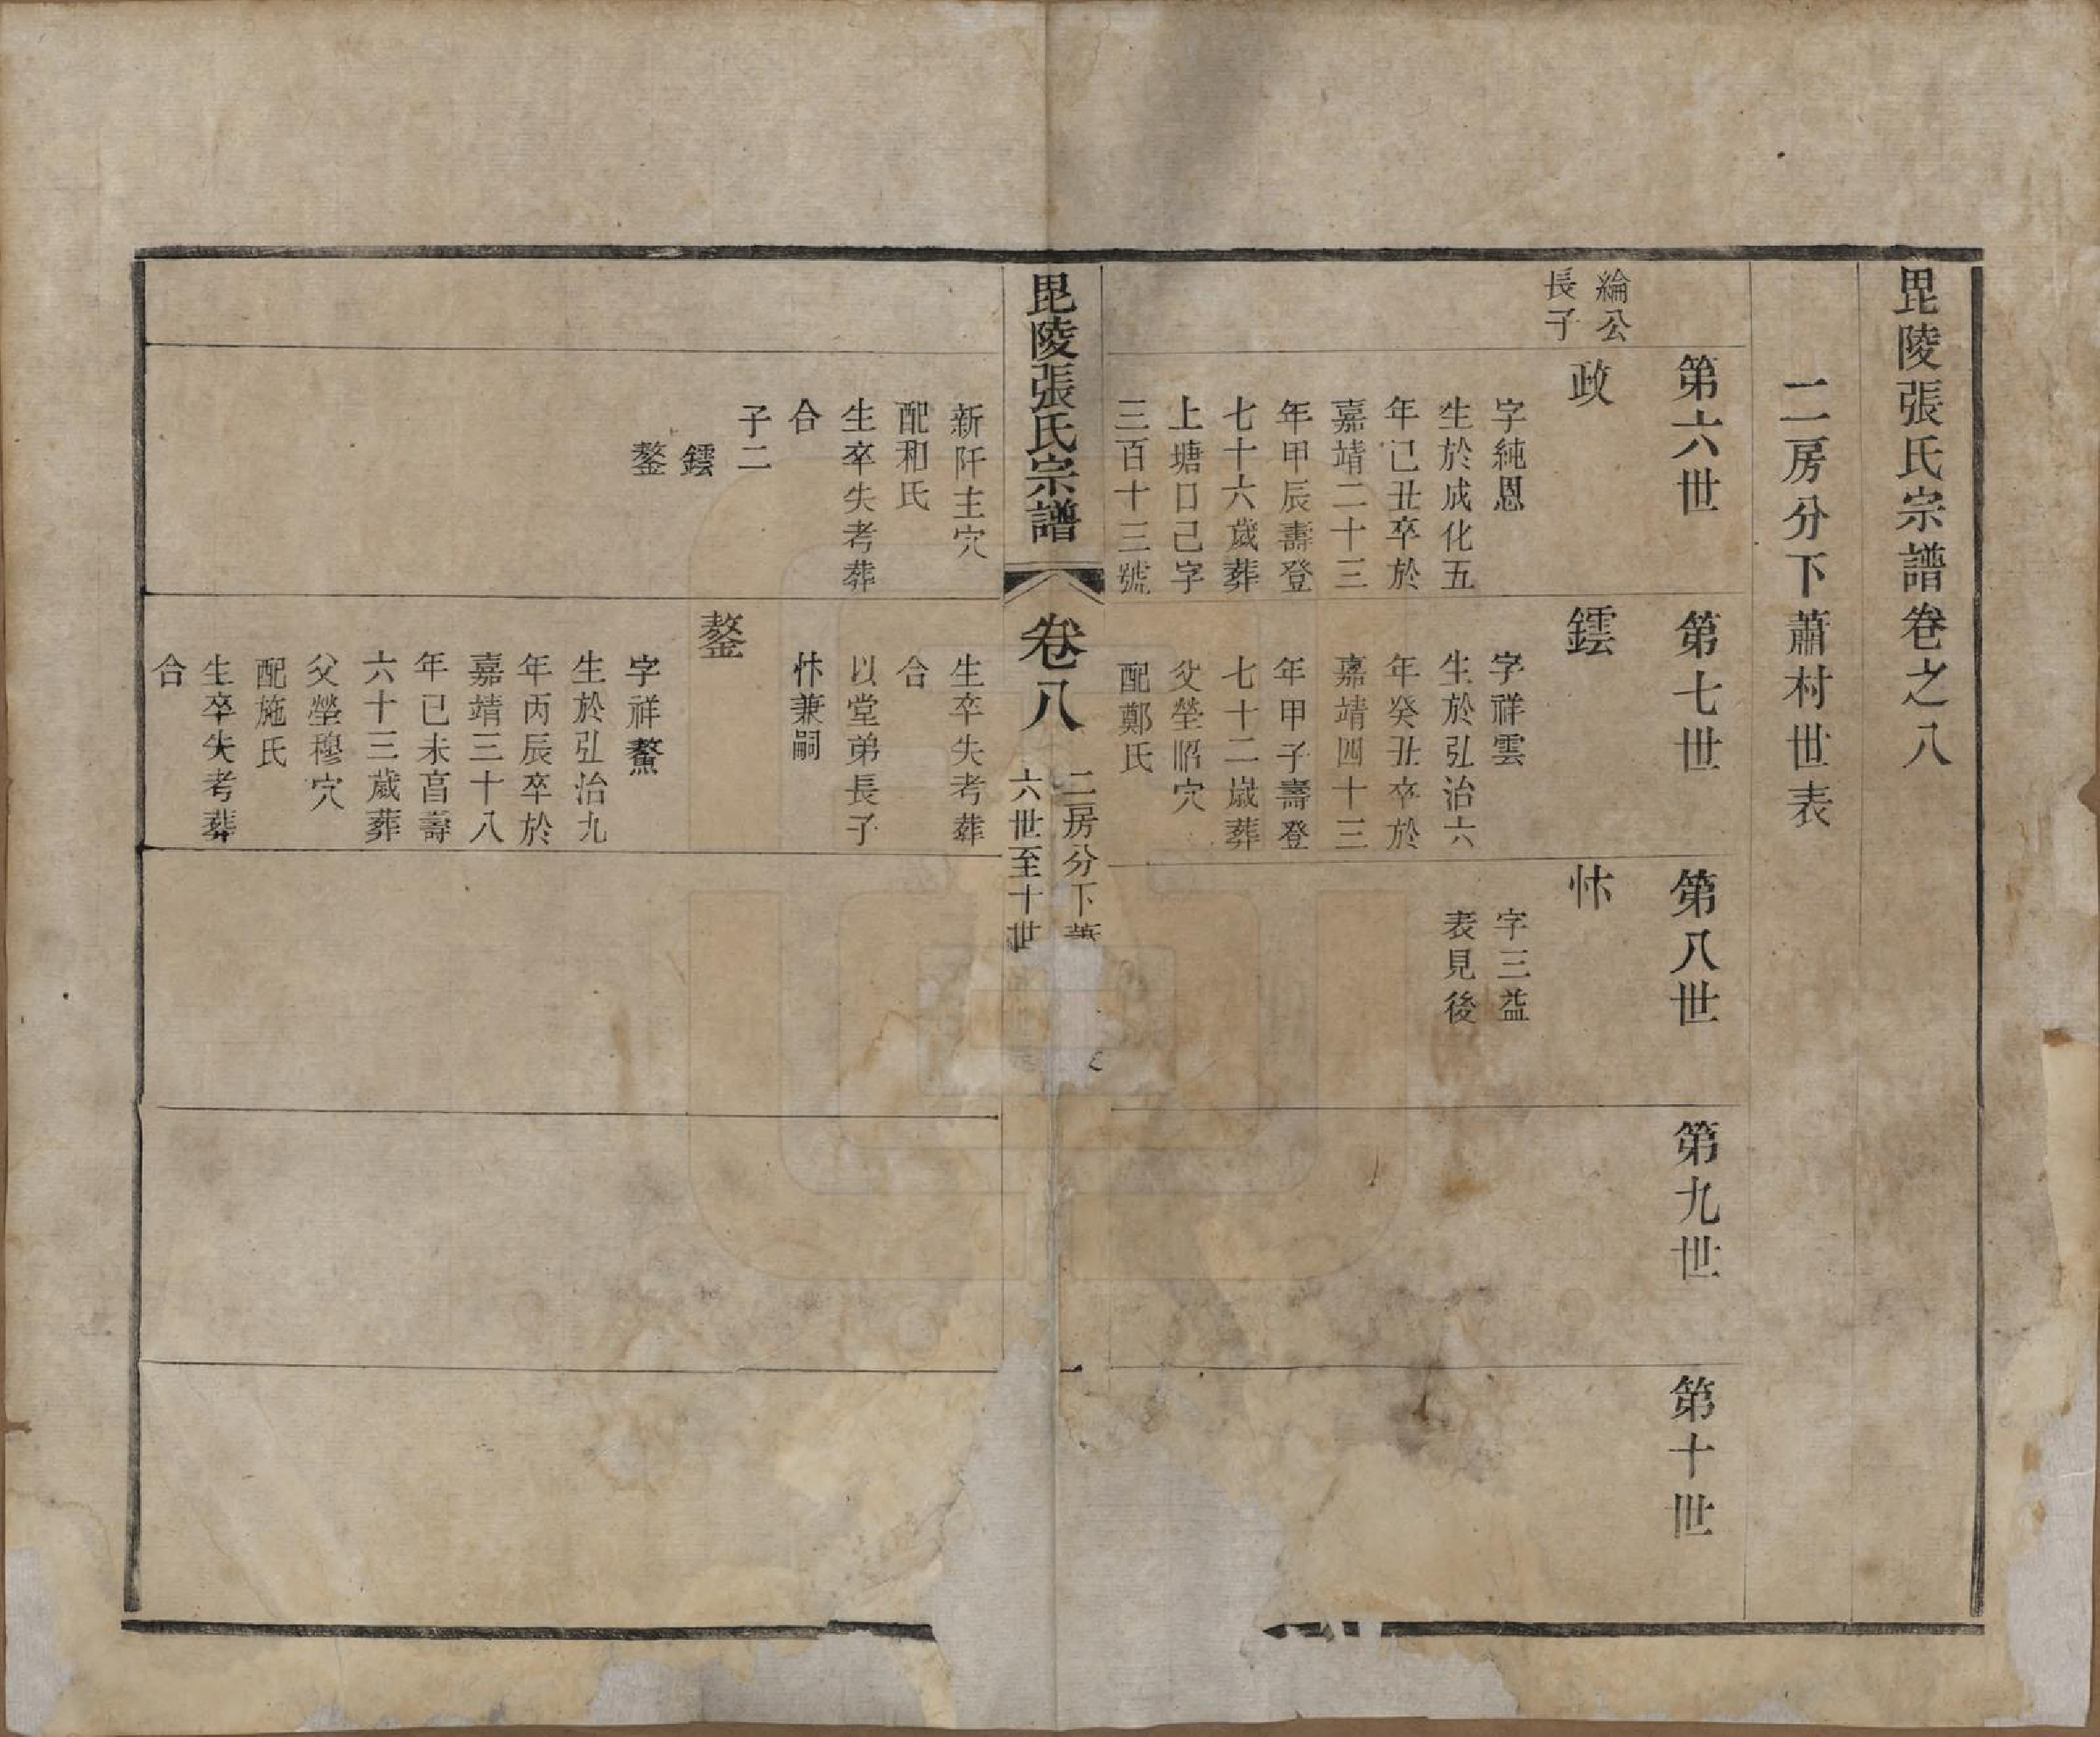 毘陵張氏宗譜卷之八
二房分下蕭村世表
第六世
第七世
第八世
第九世
第十世
綸公
長子
政
字純恩
生於成化五
年己丑卒於
嘉靖二十三
年甲辰壽登
七十六歲葬
上塘口己字
三百十三號
鑐
字祥雲
生於弘治六
年癸丑卒於
嘉靖四十三
年甲子壽登
七十二歲葬
父塋昭穴
配鄭氏
怵
字三益
表見後
毘陵張氏宗譜
卷八
二房分下蕭
六世至十世
一
新阡主穴
配和氏
生卒失考葬
合
子二
鏧
生卒失考葬
合
以堂弟長子
怵兼嗣
字祥鰲
生於弘治九
年丙辰卒於
嘉靖三十八
年己未亯壽
六十三歲葬
父塋穆穴
配施氏
生卒失考葬
合